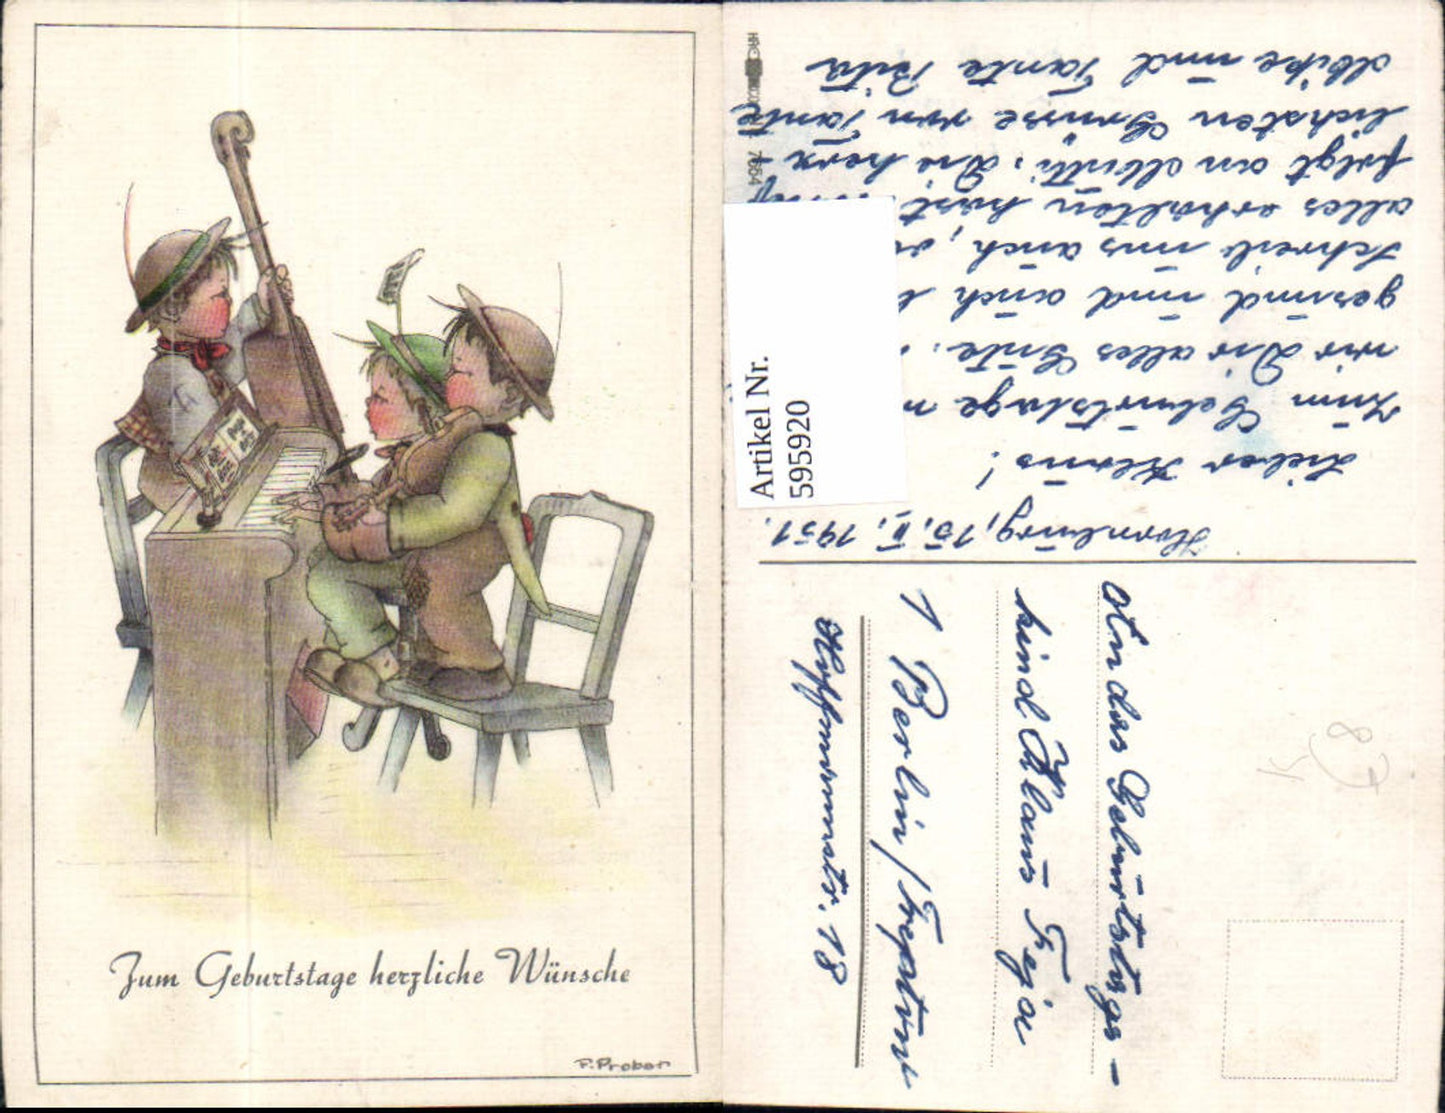 Zum Geburtstage herzliche Wünsche
P. Probst
Artikel Nr.
595920
7654
Hornburg, 15. II. 1951.
Lieber Klaus!
Zum Geburtstage
wir Dir alles Gute.
gesund und auch
Schreib uns auch,
alles erhalten hast.
folgt an Mutti. Die herz-
lichsten Grüsse von Tante
und Tante Rita
An das Geburtstags-
kind Klaus Freja
1 Berlin/Treptow
Hoffmannstr. 18